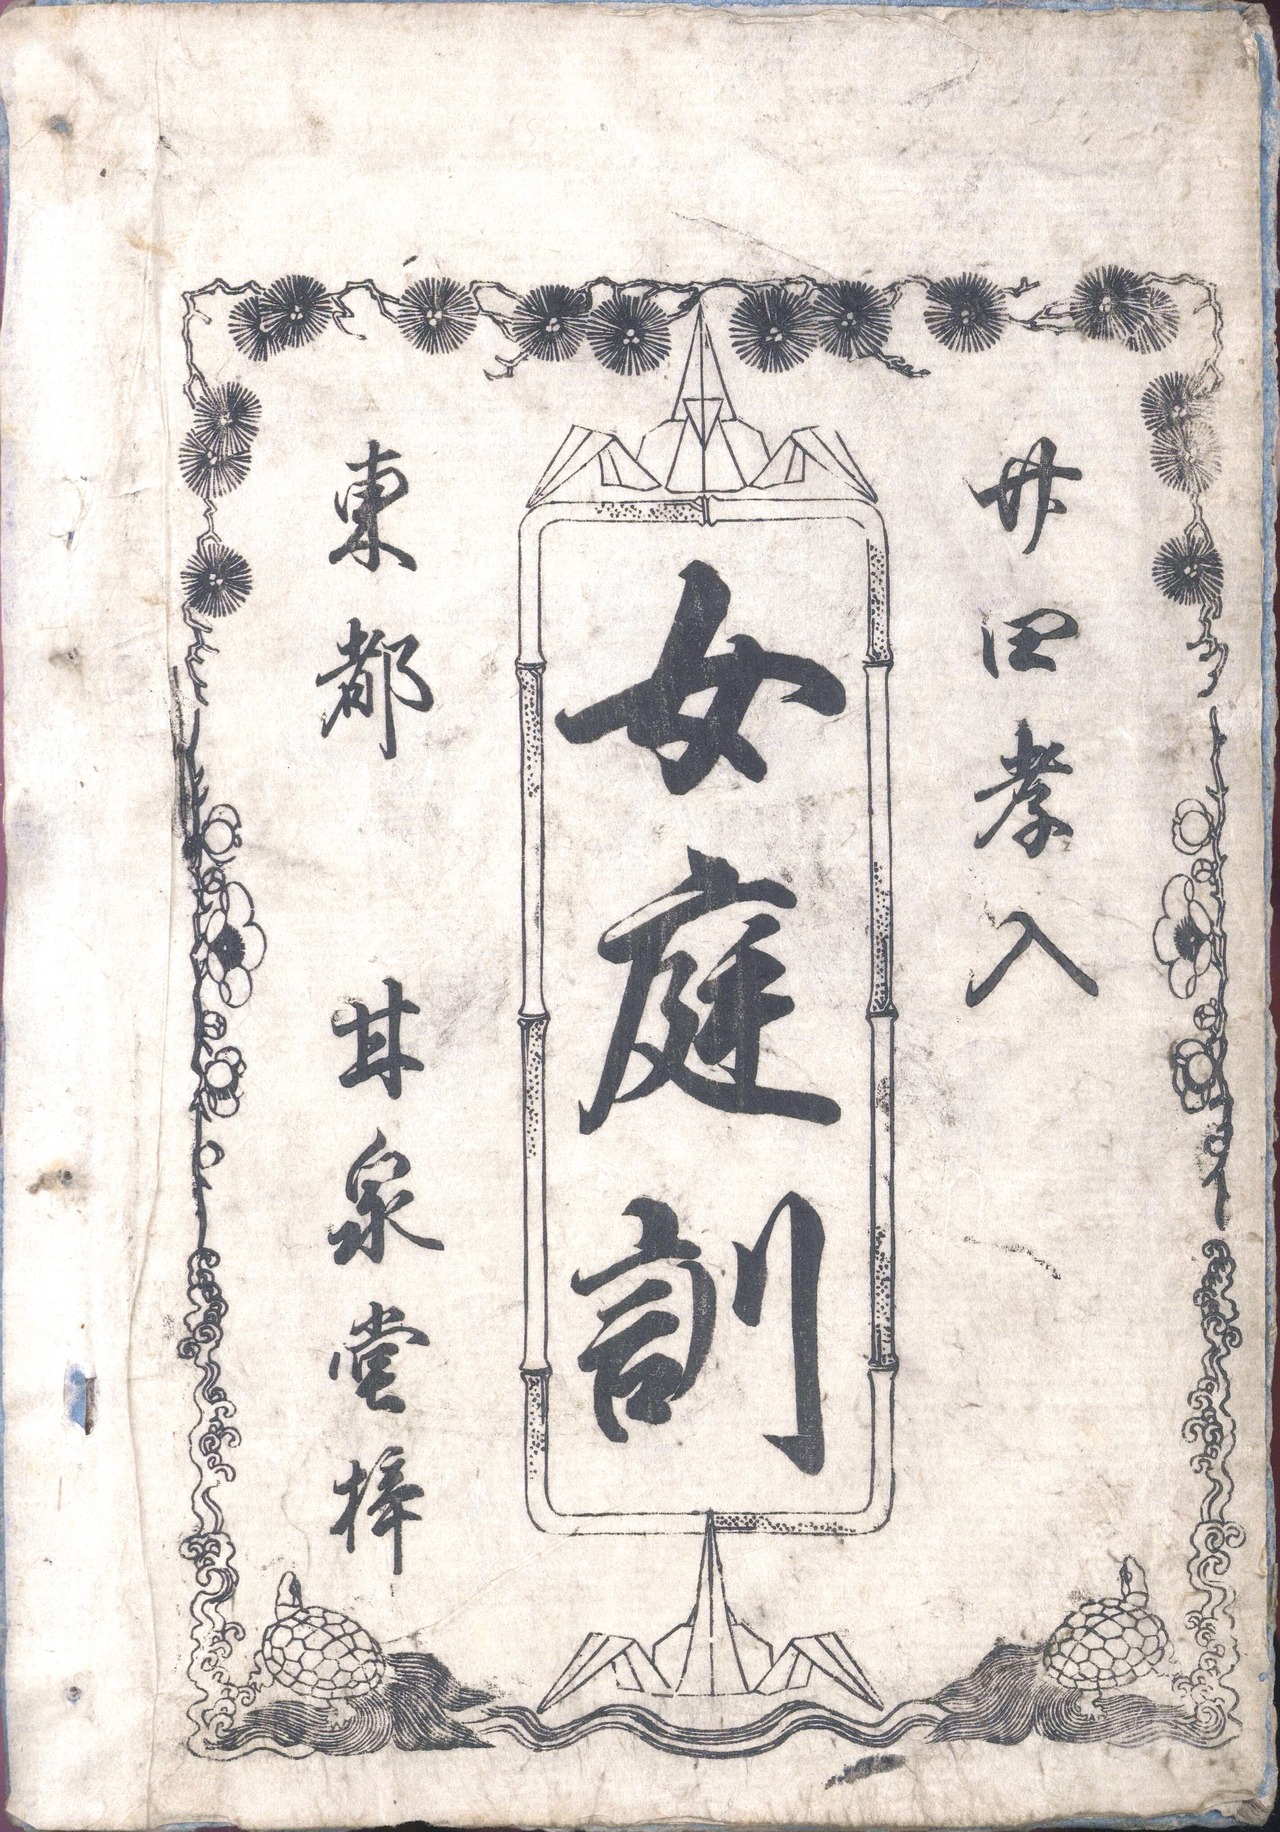 廿四孝入
女庭訓
東都 甘泉堂梓